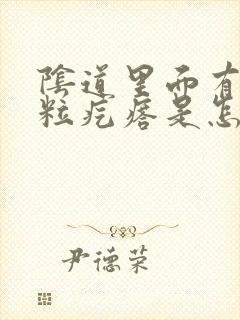 陰道里而有
粒疙瘩是怎
尹德荣